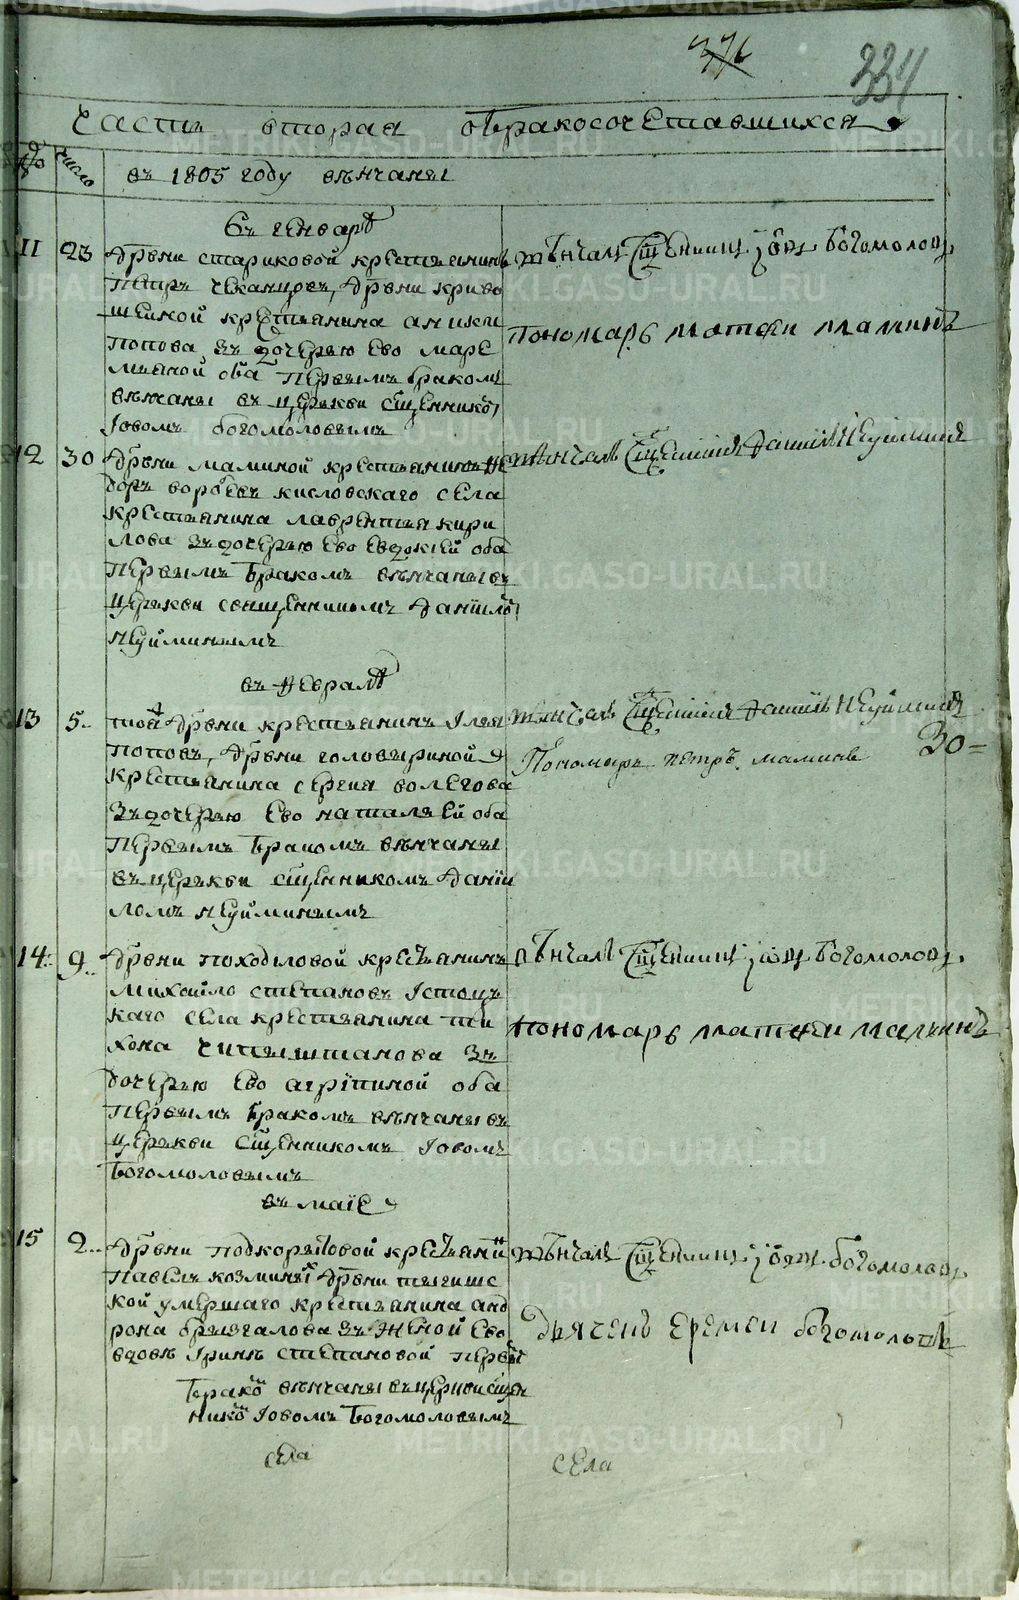 376
334
Часть вторая о бракосочетавшихся
число
въ 1805 году венчаны
въ генваре
11 23 Дрвни стариковой крестьянинъ
петръ чекануревъ, дрвни криво
шеиной крестьянина аники
попова, зъ дочерью ево маре
мьяной оба первымъ бракомъ
венчаны въ церькви сщенникомъ
Iовомъ богомоловымъ
венчалъ Сщенникъ Iовъ Богомоловъ
пономарь матвеи маминъ
12 30 Дрвни маминой крестьянинъ фе
доръ воробьевъ кисловскаго села
крестьянина лаврентья кири
лова зъ дочерью ево евдокiей оба
первымъ бракомъ венчаны въ
церькви священникомъ данiиломъ
неуйминымъ
венчалъ Сщенникъ Данiилъ Неуйминъ
въ феврале
13 5 той дрвни крестьянинъ Iлья
поповъ, дрвни головыриной
крестьянина сергея волегова
зъ дочерью ево натальей оба
первымъ бракомъ венчаны
въ церькви сщенникомъ данiи
ломъ неуйминымъ
венчалъ Сщенникъ Данiилъ Неуйминъ
Пономарь петръ маминъ
30=
14 9 Дрвни походиловой крестьянинъ
михайло степановъ Iстоцъ
каго села крестьянина ти
хона чипышtанова зъ
дочерью ево агрiпиной оба
первымъ бракомъ венчаны въ
церькви сщенникомъ Iовомъ
богомоловымъ
венчалъ Сщенникъ Iовъ Богомоловъ
пономарь матвеи маминъ
въ маiе
15 2 Дрвни подкорытовой крестьянинъ
павелъ козминыхъ дрвни тыгишс
кой умершаго крестьянина анд
рона брызгалова зъ женой ево
вдовъ Iринъ степановой первымъ
бракомъ венчаны въ церкви сщен
никомъ Iовомъ богомоловымъ
венчалъ Сщенникъ Iовъ Богомоловъ
дьячекъ еремеи богомоловъ
села
села
METRIKI.GASO-URAL.RU